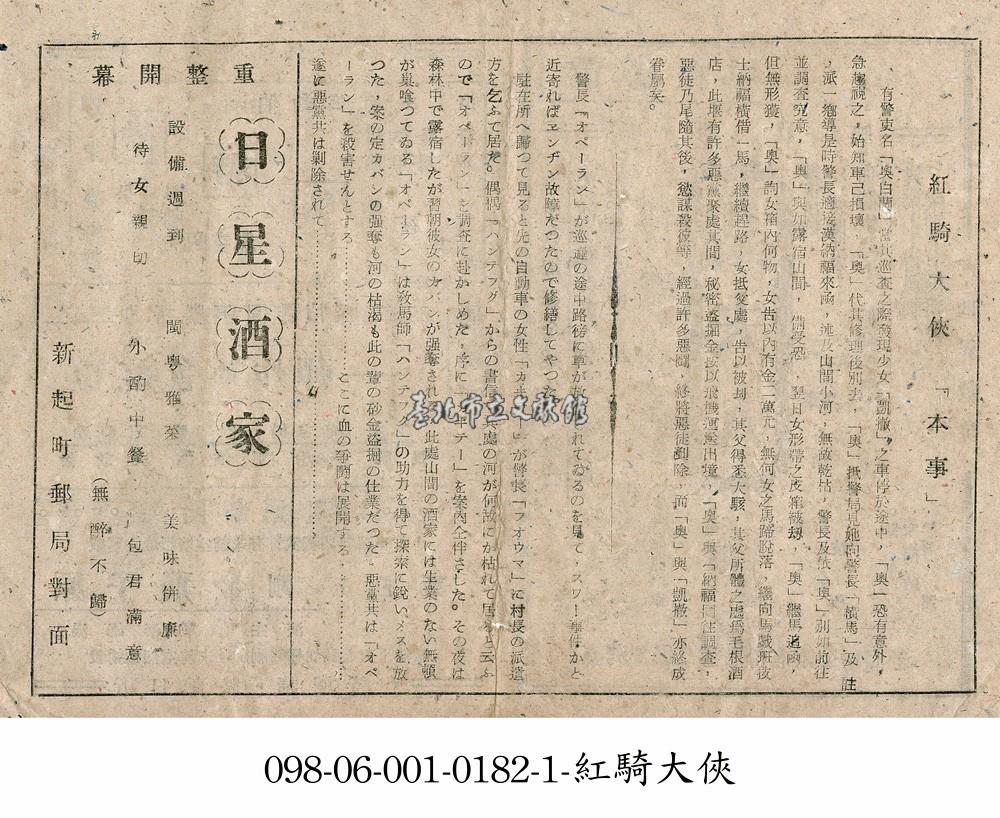 紅騎大俠 「本事」
有警吏名「奧白蘭」當其巡查之際發現少女「凱撤」之車停於途中，「奧」恐有意外，
急趨視之，始知車已損壞，「奧」代其修理後別去，「奧」抵警局見她向警長「
，派一鄉導是時警長適接漢納福來函，述及山間小河，無故乾枯，警長及
並調査究意，「奧」與如露宿山間，備受恐 翌日女形帶之皮箱被刼，「奧」繼馬追函，
但無形獲，「奧」詢女箱內何物，女告以內有金一萬元，無何女之馬蹄脫落，繼向馬戲班後
士納福橫借一馬，繼續趕路，女抵父處，告以被刼，其父得悉大駭，其父所體之處爲毛根酒
店，此堰有許多惡黨聚處其間，秘密盜掘金
惡徒乃尾隨其後，慾謀殺彼等，經過許多惡鬪，終將惡徒剷除，而「奧」與「凱撤」亦終成
眷屬矣。
警長「オペーラン」が巡邏の途中路傍に車が れてゐるのを見て，スワー事件かと
近寄ればエンヂン故障だつたので修繕してやつた
駐在所へ歸つて見ると先の自動車の女性 が警長「フオウマ」に村長の派遣
方を乞ふて居た。偶偶「ハンテフグ」からの書 處の河が何故にか枯れて居ると云ふ
ので「オペーラン」を調査に赴かしめた，序に を案內仝伴さした。その夜は
森林中で露宿したが習朝彼女のカバンが强奪され 此處山間の酒家には生業のない無頓
が巢喰つてゐる「オペーラン」は敎馬師「ハンテフグ」の助力を得て探索に銳いメスを放
つた，案の定カバンの强奪も河の枯渴も此の輩の砂金盜掘の仕業だつた 惡黨共は「オペ
ーラン」を殺害せんとする…………ここに血の爭鬪は展開する…………
遂に惡黨共は剿除されて…………
重整開幕
日星酒家
設備週到 閩粵雅菜 美味併廉
待女親切 外酌中餐 包君滿意
（無醉不歸）
新起町郵局對面
臺北市立文獻館
098-06-001-0182-1-紅騎大俠